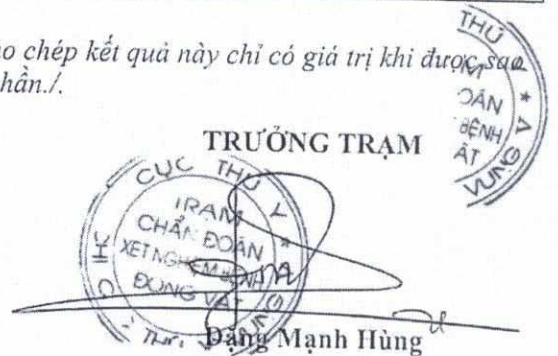 o chép kết quả này chỉ có giá trị khi được sao
hần./.
TRƯỞNG TRẠM
CỤC THÚ Y *
TRẠM
CHẨN ĐOÁN
XÉT NGHIỆM BỆNH
ĐỘNG VẬT
Đặng Mạnh Hùng
THÚ Y * VÙNG
OÁN
BỆNH
ẬT